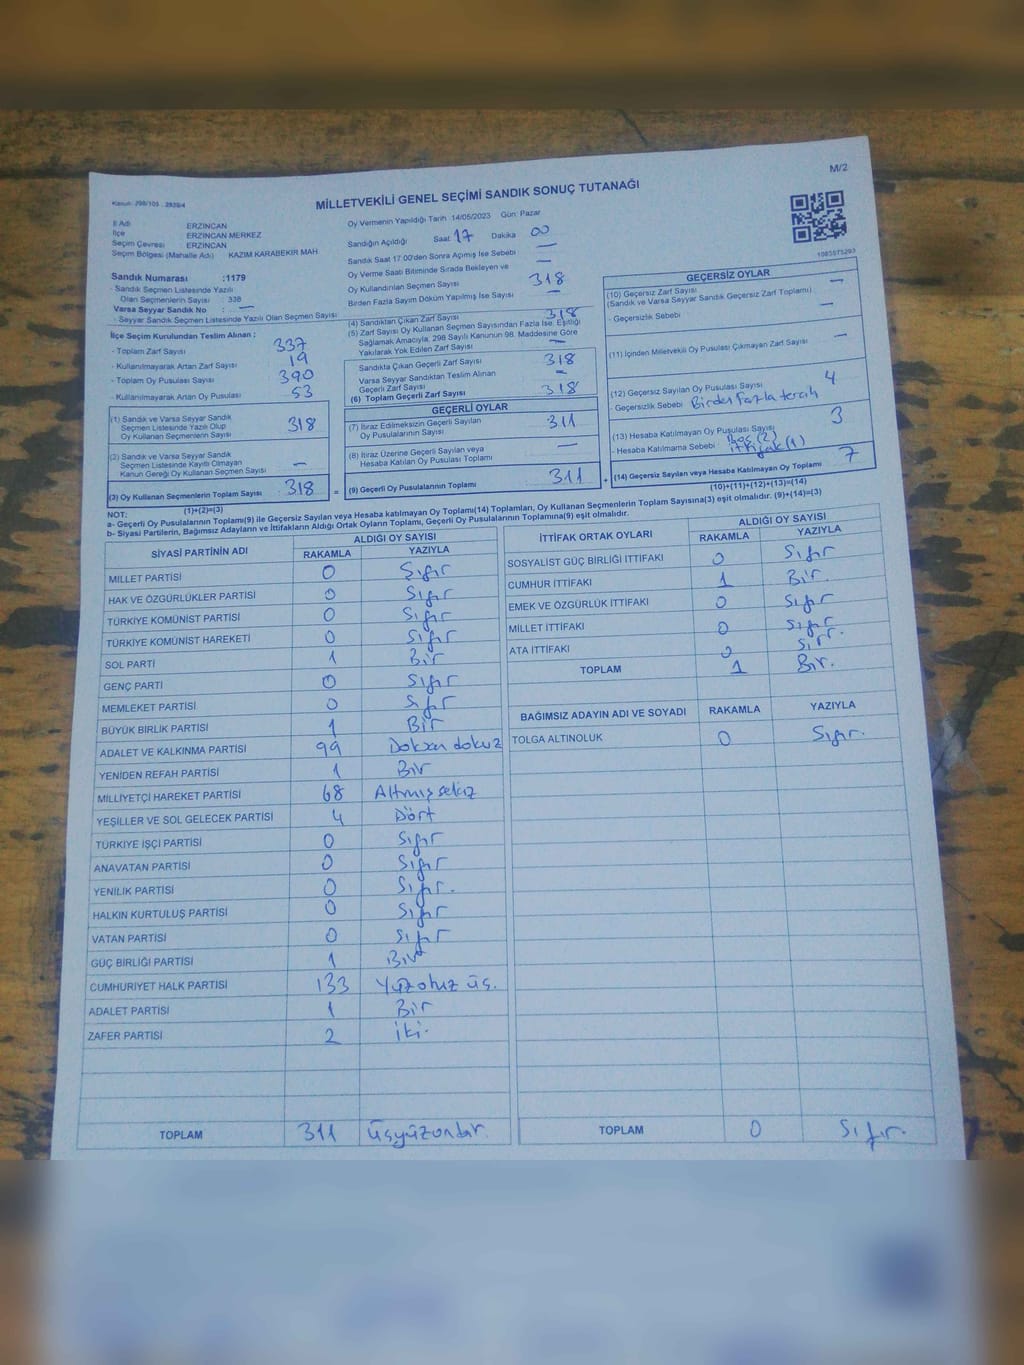 M/2
Kanun: 298/105 , 2839/4
MİLLETVEKİLİ GENEL SEÇİMİ SANDIK SONUÇ TUTANAĞI
İl Adı ERZİNCAN
İlçe ERZİNCAN MERKEZ
Seçim Çevresi ERZİNCAN
Seçim Bölgesi (Mahalle Adı) KAZIM KARABEKİR MAH.
Sandık Numarası :1179
- Sandık Seçmen Listesinde Yazılı
Olan Seçmenlerin Sayısı : 338
Varsa Seyyar Sandık No : —
- Seyyar Sandık Seçmen Listesinde Yazılı Olan Seçmen Sayısı
İlçe Seçim Kurulundan Teslim Alınan ;
- Toplam Zarf Sayısı 337
- Kullanılmayarak Artan Zarf Sayısı 19
- Toplam Oy Pusulası Sayısı 390
- Kullanılmayarak Artan Oy Pusulası 53
(1) Sandık ve Varsa Seyyar Sandık
Seçmen Listesinde Yazılı Olup
Oy Kullanan Seçmenlerin Sayısı 318
(2) Sandık ve Varsa Seyyar Sandık
Seçmen Listesinde Kayıtlı Olmayan
Kanun Gereği Oy Kullanan Seçmen Sayısı —
(3) Oy Kullanan Seçmenlerin Toplam Sayısı 318 =
(1)+(2)=(3)
Oy Vermenin Yapıldığı Tarih :14/05/2023 Gün: Pazar
Sandığın Açıldığı Saat 17 Dakika 00
Sandık Saat 17.00'den Sonra Açımış İse Sebebi —
Oy Verme Saati Bitiminde Sırada Bekleyen ve
Oy Kullandırılan Seçmen Sayısı 318
Birden Fazla Sayım Döküm Yapılmış İse Sayısı —
(4) Sandıktan Çıkan Zarf Sayısı 318
(5) Zarf Sayısı Oy Kullanan Seçmen Sayısından Fazla İse, Eşitliği
Sağlamak Amacıyla, 298 Sayılı Kanunun 98. Maddesine Göre
Yakılarak Yok Edilen Zarf Sayısı —
Sandıkta Çıkan Geçerli Zarf Sayısı 318
Varsa Seyyar Sandıktan Teslim Alınan
Geçerli Zarf Sayısı —
(6) Toplam Geçerli Zarf Sayısı 318
GEÇERLİ OYLAR
(7) İtiraz Edilmeksizin Geçerli Sayılan
Oy Pusulalarının Sayısı 311
(8) İtiraz Üzerine Geçerli Sayılan veya
Hesaba Katılan Oy Pusulası Toplamı —
(9) Geçerli Oy Pusulalarının Toplamı 311 +
1083575293
GEÇERSİZ OYLAR
(10) Geçersiz Zarf Sayısı —
(Sandık ve Varsa Seyyar Sandık Geçersiz Zarf Toplamı)
- Geçersizlik Sebebi —
(11) İçinden Milletvekili Oy Pusulası Çıkmayan Zarf Sayısı —
(12) Geçersiz Sayılan Oy Pusulası Sayısı 4
- Geçersizlik Sebebi Birden fazla tercih
(13) Hesaba Katılmayan Oy Pusulası Sayısı 3
- Hesaba Katılmama Sebebi : Boş (2)
(1)
(14) Geçersiz Sayılan veya Hesaba Katılmayan Oy Toplamı 7
(10)+(11)+(12)+(13)=(14)
NOT:
a- Geçerli Oy Pusulalarının Toplamı(9) ile Geçersiz Sayılan veya Hesaba katılmayan Oy Toplamı(14) Toplamları, Oy Kullanan Seçmenlerin Toplam Sayısına(3) eşit olmalıdır. (9)+(14)=(3)
b- Siyasi Partilerin, Bağımsız Adayların ve İttifakların Aldığı Ortak Oyların Toplamı, Geçerli Oy Pusulalarının Toplamına(9) eşit olmalıdır.
SİYASİ PARTİNİN ADI ALDIĞI OY SAYISI
RAKAMLA YAZIYLA
MİLLET PARTİSİ 0 Sıfır
HAK VE ÖZGÜRLÜKLER PARTİSİ 0 Sıfır
TÜRKİYE KOMÜNİST PARTİSİ 0 Sıfır
TÜRKİYE KOMÜNİST HAREKETİ 0 Sıfır
SOL PARTİ 1 Bir
GENÇ PARTİ 0 Sıfır
MEMLEKET PARTİSİ 0 Sıfır
BÜYÜK BİRLİK PARTİSİ 1 Bir
ADALET VE KALKINMA PARTİSİ 99 Doksan dokuz
YENİDEN REFAH PARTİSİ 1 Bir
MİLLİYETÇİ HAREKET PARTİSİ 68 Altmış sekiz
YEŞİLLER VE SOL GELECEK PARTİSİ 4 Dört
TÜRKİYE İŞÇİ PARTİSİ 0 Sıfır
ANAVATAN PARTİSİ 0 Sıfır
YENİLİK PARTİSİ 0 Sıfır.
HALKIN KURTULUŞ PARTİSİ 0 Sıfır
VATAN PARTİSİ 0 Sıfır
GÜÇ BİRLİĞİ PARTİSİ 1 Bir
CUMHURİYET HALK PARTİSİ 133 Yüzotuz üç.
ADALET PARTİSİ 1 Bir
ZAFER PARTİSİ 2 İki.
TOPLAM 311 üçyüzonbir.
İTTİFAK ORTAK OYLARI ALDIĞI OY SAYISI
RAKAMLA YAZIYLA
SOSYALİST GÜÇ BİRLİĞİ İTTİFAKI 0 Sıfır
CUMHUR İTTİFAKI 1 Bir.
EMEK VE ÖZGÜRLÜK İTTİFAKI 0 Sıfır
MİLLET İTTİFAKI 0 Sıfır
ATA İTTİFAKI 0 Sıfır.
TOPLAM 1 Bir.
BAĞIMSIZ ADAYIN ADI VE SOYADI RAKAMLA YAZIYLA
TOLGA ALTINOLUK 0 Sıfır.
TOPLAM 0 Sıfır.